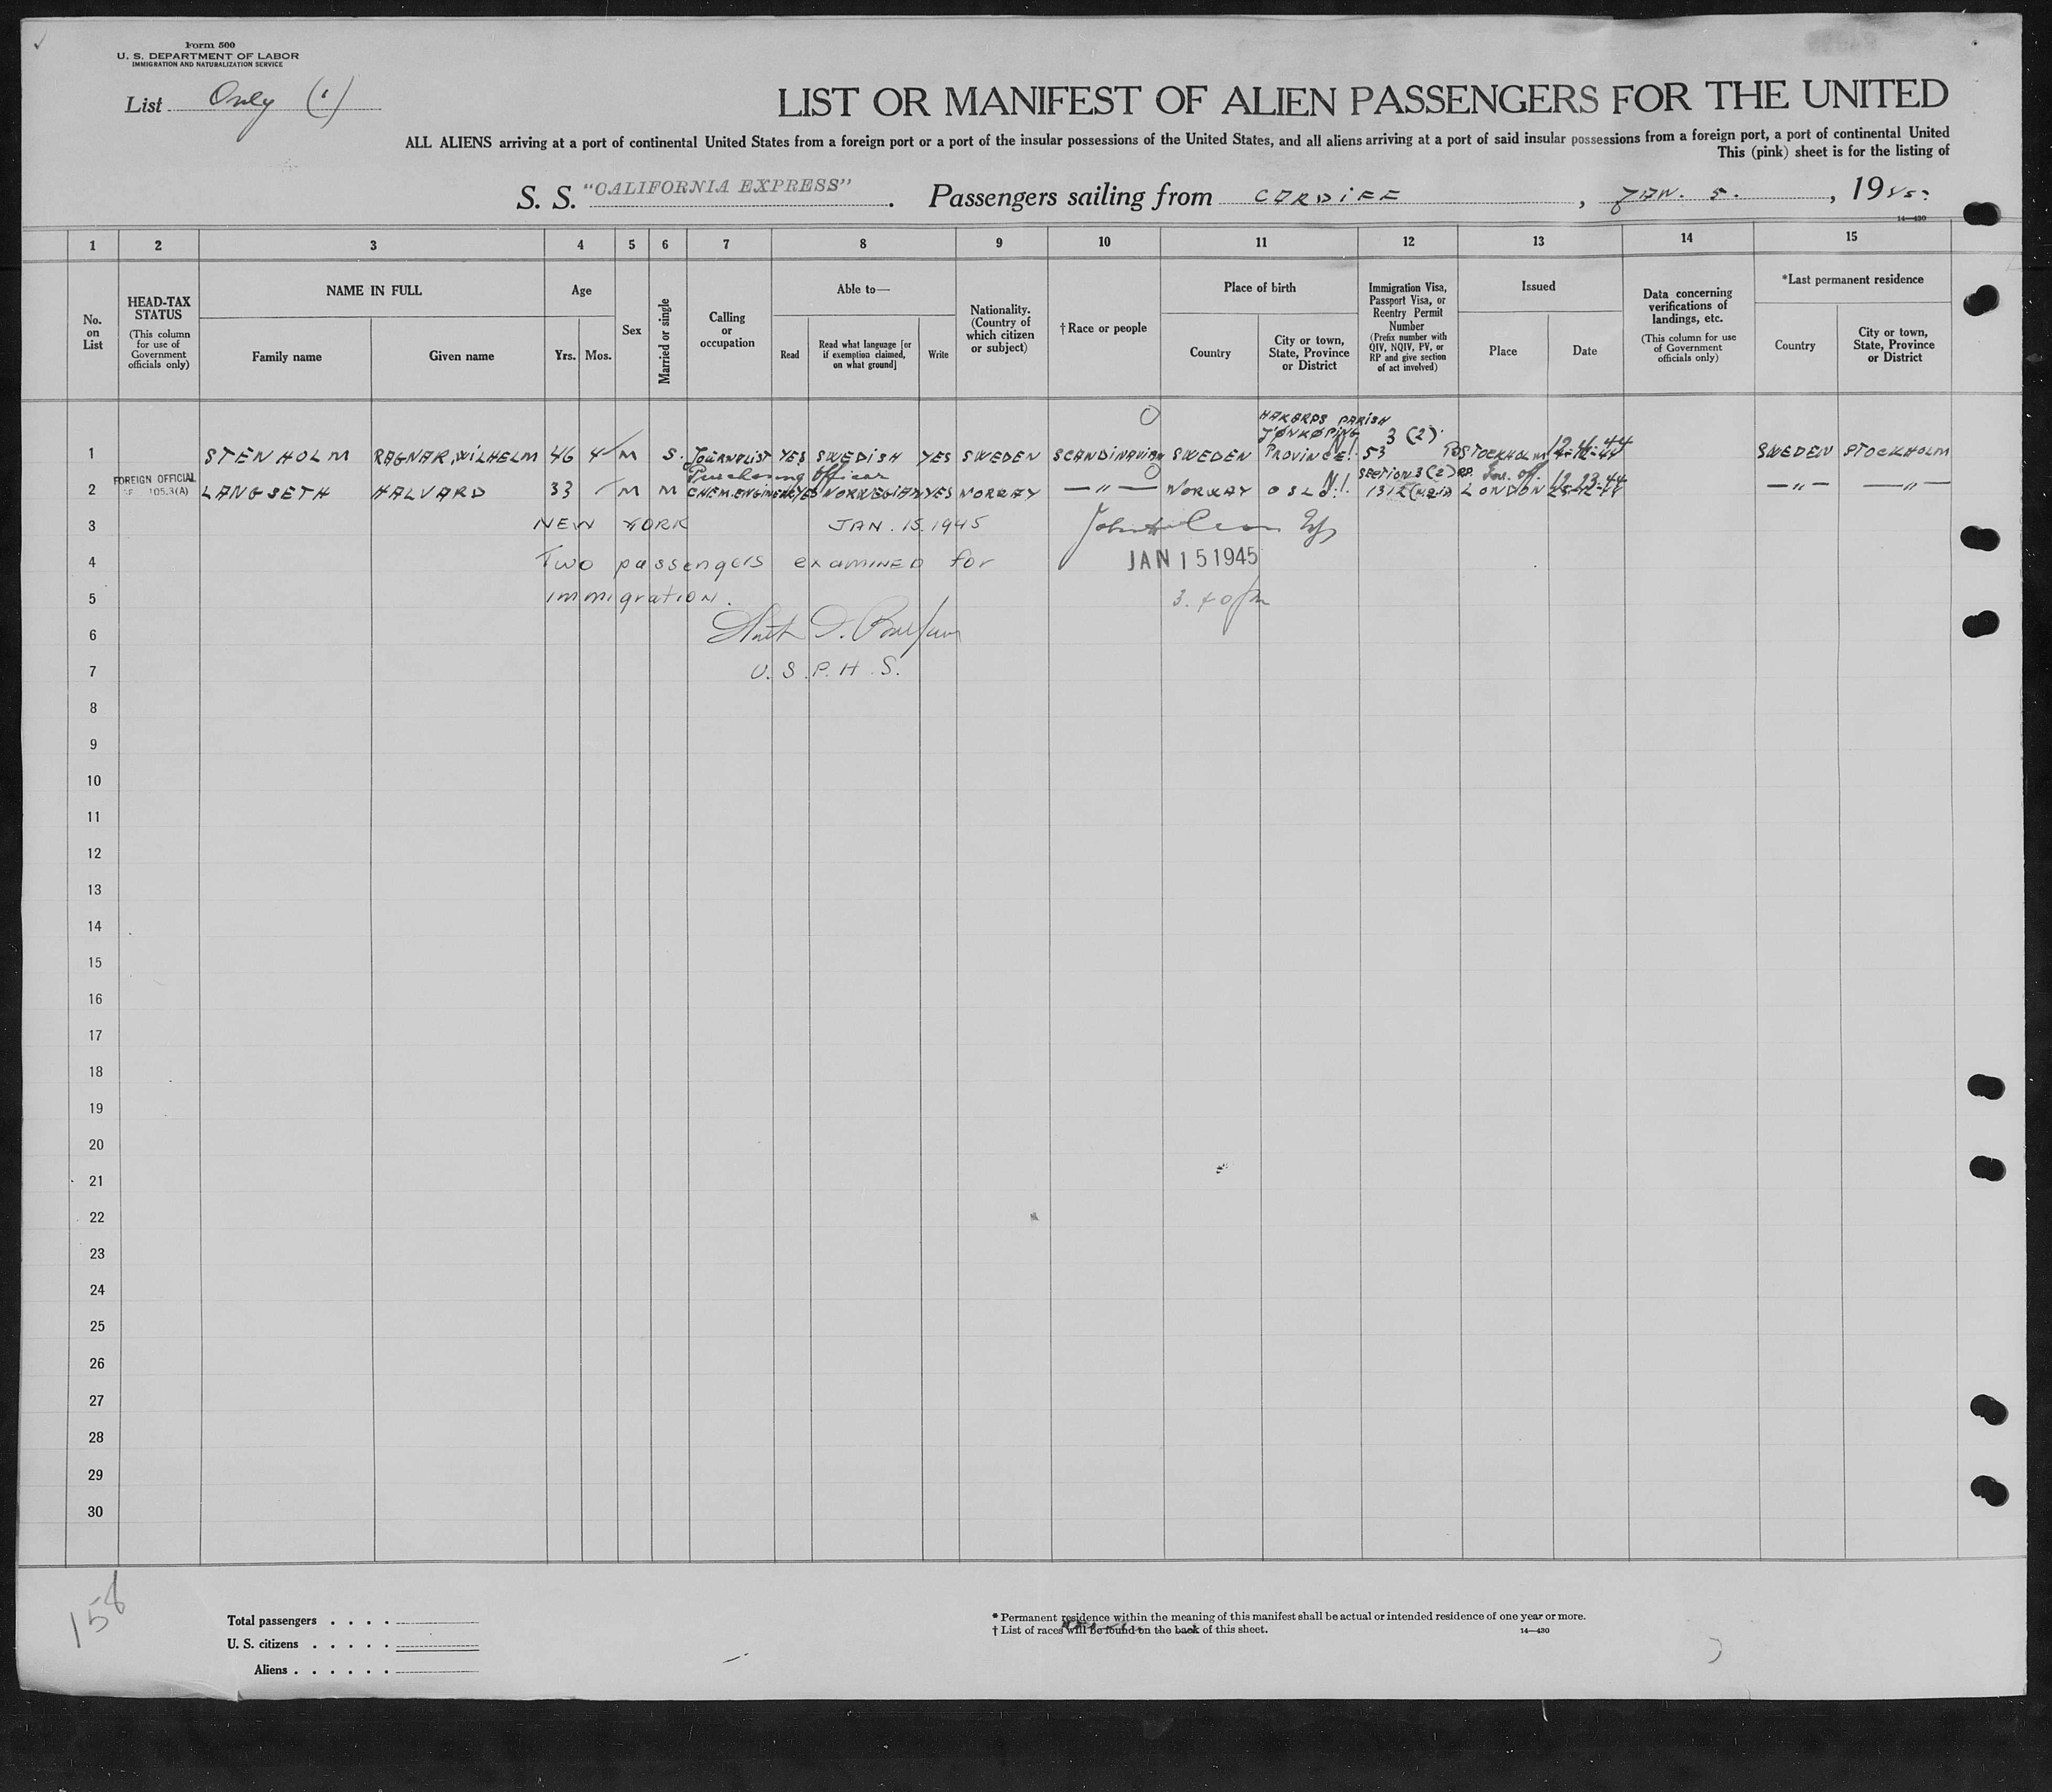 Form 500
U. S. DEPARTMENT OF LABOR
IMMIGRATION AND NATURALIZATION SERVICE
List Only (1)
LIST OR MANIFEST OF ALIEN PASSENGERS FOR THE UNITED
ALL ALIENS arriving at a port of continental United States from a foreign port or a port of the insular possessions of the United States, and all aliens arriving at a port of said insular possessions from a foreign port, a port of continental United
This (pink) sheet is for the listing of
S. S. "CALIFORNIA EXPRESS". Passengers sailing from CARDIFF, JAN. 5., 1945.
14—430
1 2 3 4 5 6 7 8 9 10 11 12 13 14 15
No. on List
HEAD-TAX STATUS
(This column for use of Government officials only)
NAME IN FULL
Family name
Given name
Age
Yrs.
Mos.
Sex
Married or single
Calling or occupation
Able to—
Read
Read what language [or if exemption claimed, on what ground]
Write
Nationality. (Country of which citizen or subject)
†Race or people
Place of birth
Country
City or town, State, Province or District
Immigration Visa, Passport Visa, or Reentry Permit Number
(Prefix number with QIV, NQIV, PV, or RP and give section of act involved)
Issued
Place
Date
Data concerning verifications of landings, etc.
(This column for use of Government officials only)
*Last permanent residence
Country
City or town, State, Province or District
HAKARPS PARISH
JØNKØPING 3 (2).
1 STENHOLM RAGNAR, WILHELM 46 4 M S. JOURNALIST YES SWEDISH YES SWEDEN SCANDINAVIAN SWEDEN PROVINCE 53 STOCKHOLM SWEDEN STOCKHOLM
FOREIGN OFFICIAL 105.3(A) Purchasing Officer Section 3 (2)
2 LANGSETH HALVARD 33 M M CHEM.ENGINEER YES NORWEGIAN YES NORWAY —〃— NORWAY OSLO 1312 LONDON 12-23-44 —〃— —〃—
3 NEW YORK JAN. 15. 1945
4 Two passengers examined for JAN 15 1945
5 immigration. 3.40 pm
6
7 U. S. P. H. S.
8
9
10
11
12
13
14
15
16
17
18
19
20
21
22
23
24
25
26
27
28
29
30
158
Total passengers . . . .
U. S. citizens . . . . .
Aliens . . . . . .
* Permanent residence within the meaning of this manifest shall be actual or intended residence of one year or more.
† List of races will be found on the back of this sheet.
14—430